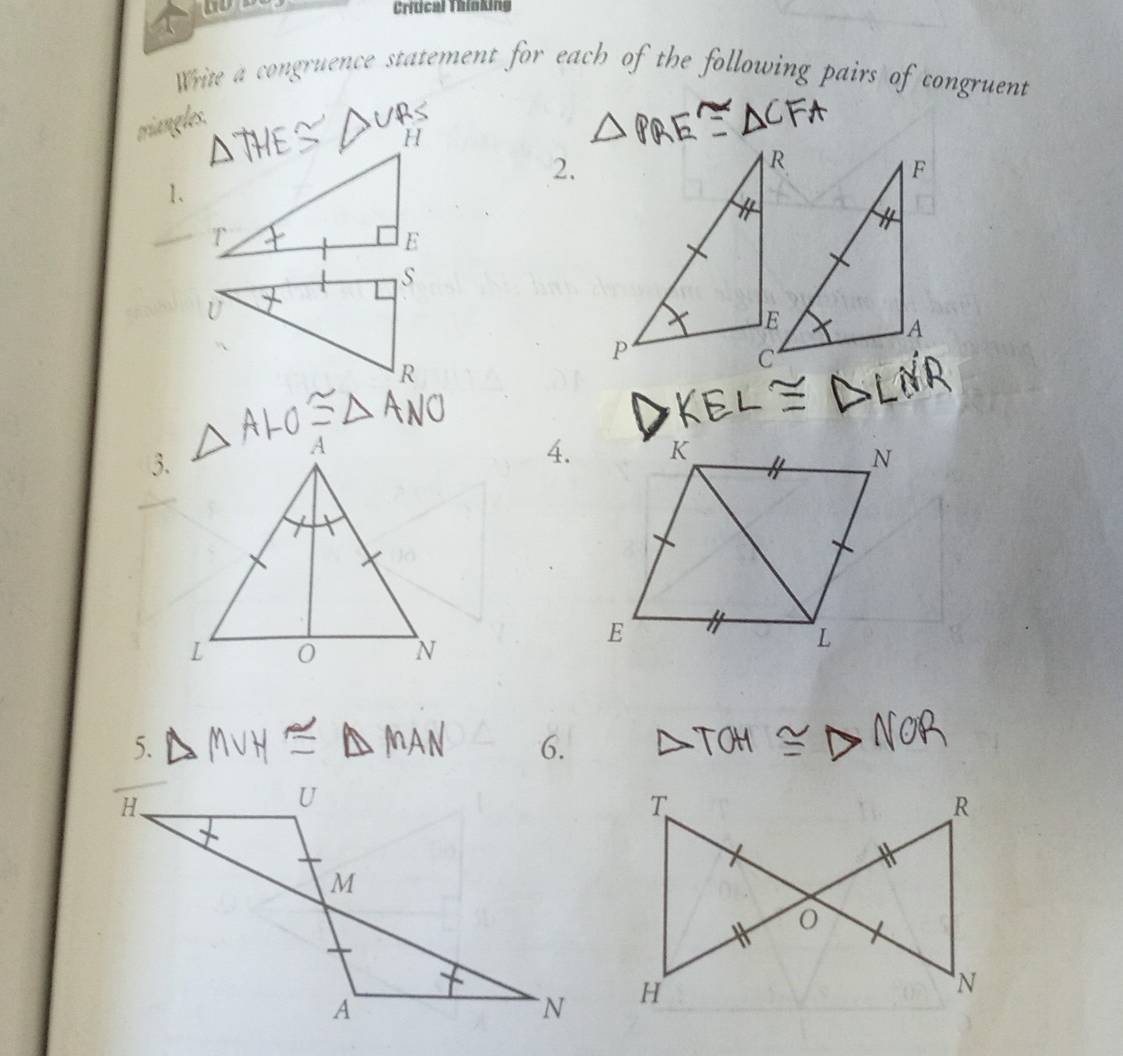 Critical Thinking
Write a congruence statement for each of the following pairs of congruent
triangles.
△THE ≅ △URS
1.
H
T
E
U
S
R
△PRE ≅ △CFA
2.
R
F
P
E
C
A
△ALO ≅ △ANO
3.
A
L
O
N
△KEL ≅ △LNR
4.
K
N
E
L
5. △MUH ≅ △MAN
H
U
M
A
N
6. △TOH ≅ △NOR
T
R
O
H
N